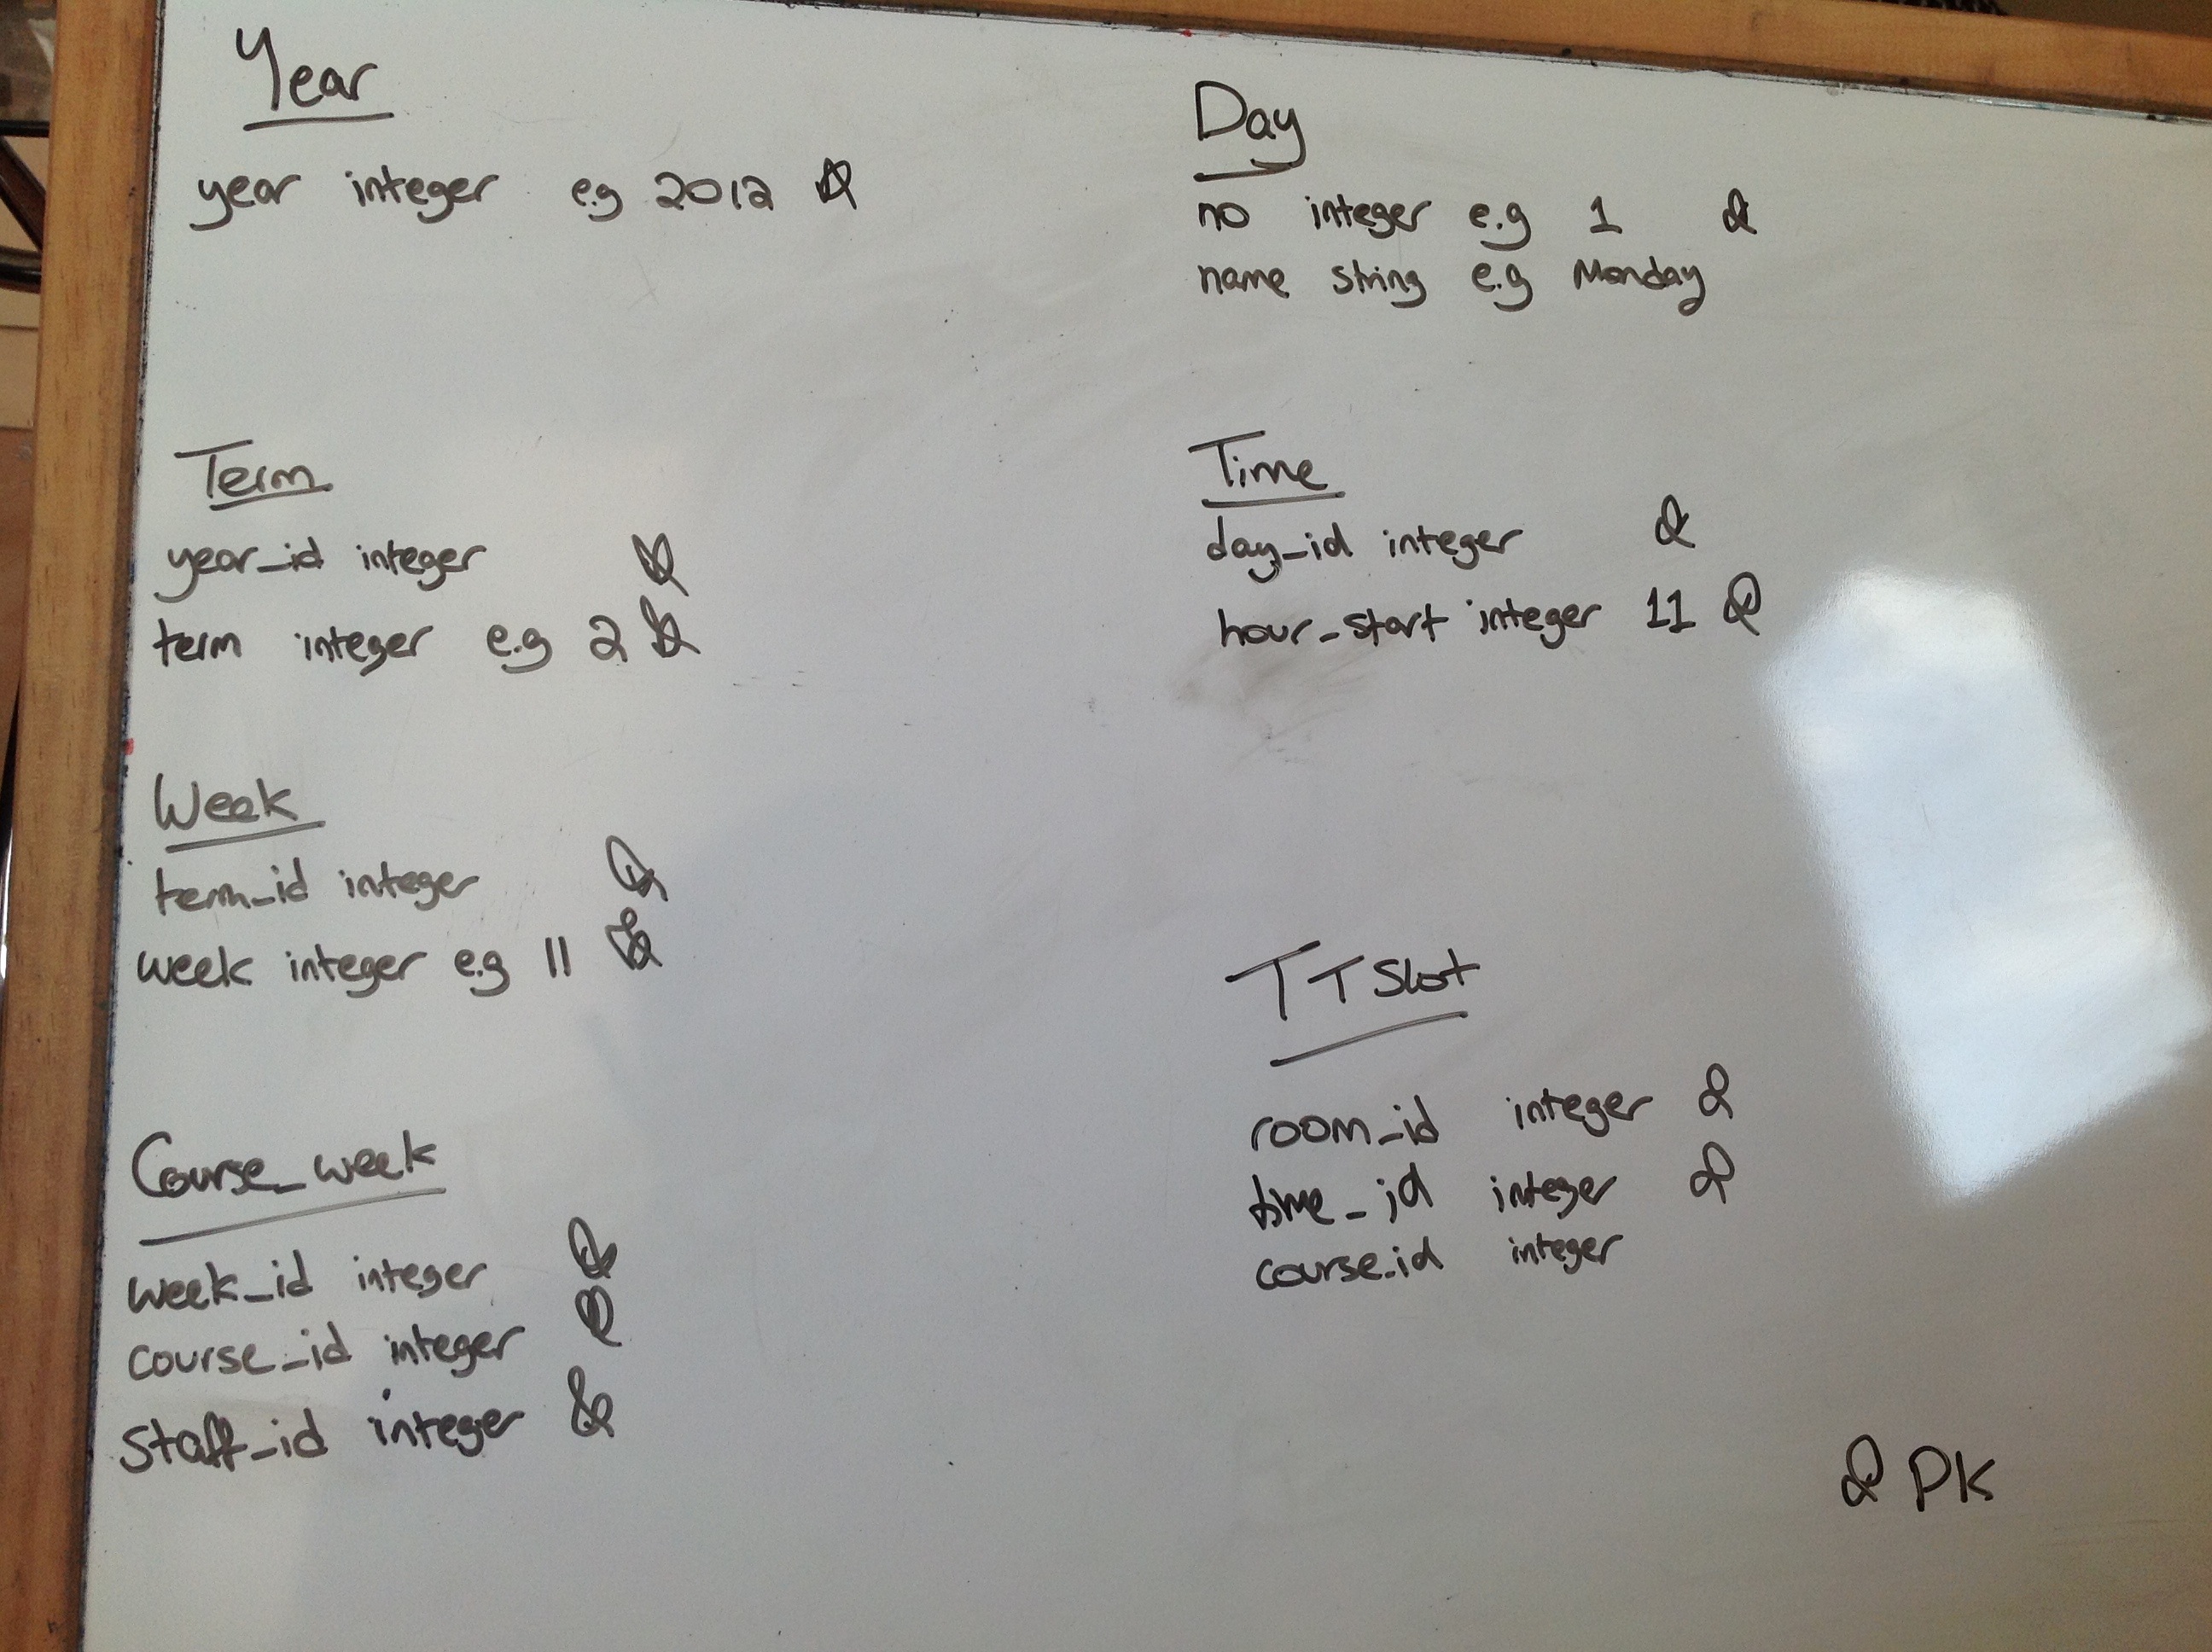 Year
year integer e.g 2012
Term
year_id integer
term integer e.g 2
Week
term_id integer
week integer e.g 11
Course_week
week_id integer
course_id integer
staff_id integer
Day
no integer e.g 1
name string e.g Monday
Time
day_id integer
hour_start integer 11
TTSlot
room_id integer
time_id integer
course_id integer
PK